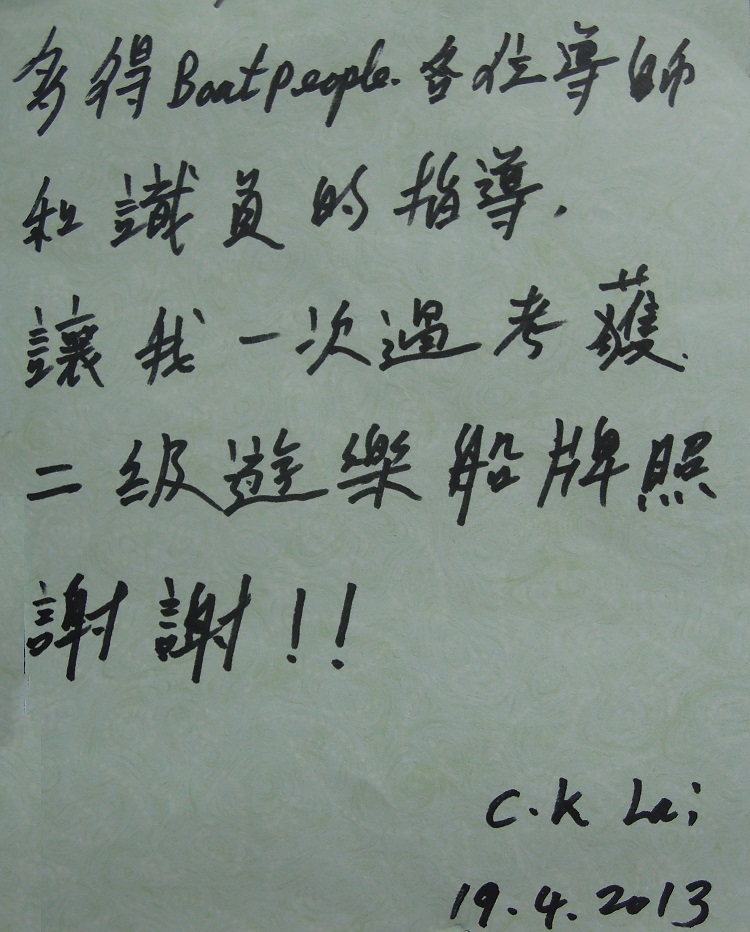 多得 Boatpeople. 各位導師
和識員的指導，
讓我一次過考獲
二級遊樂船牌照
謝謝!!
C.K Lai
19.4.2013